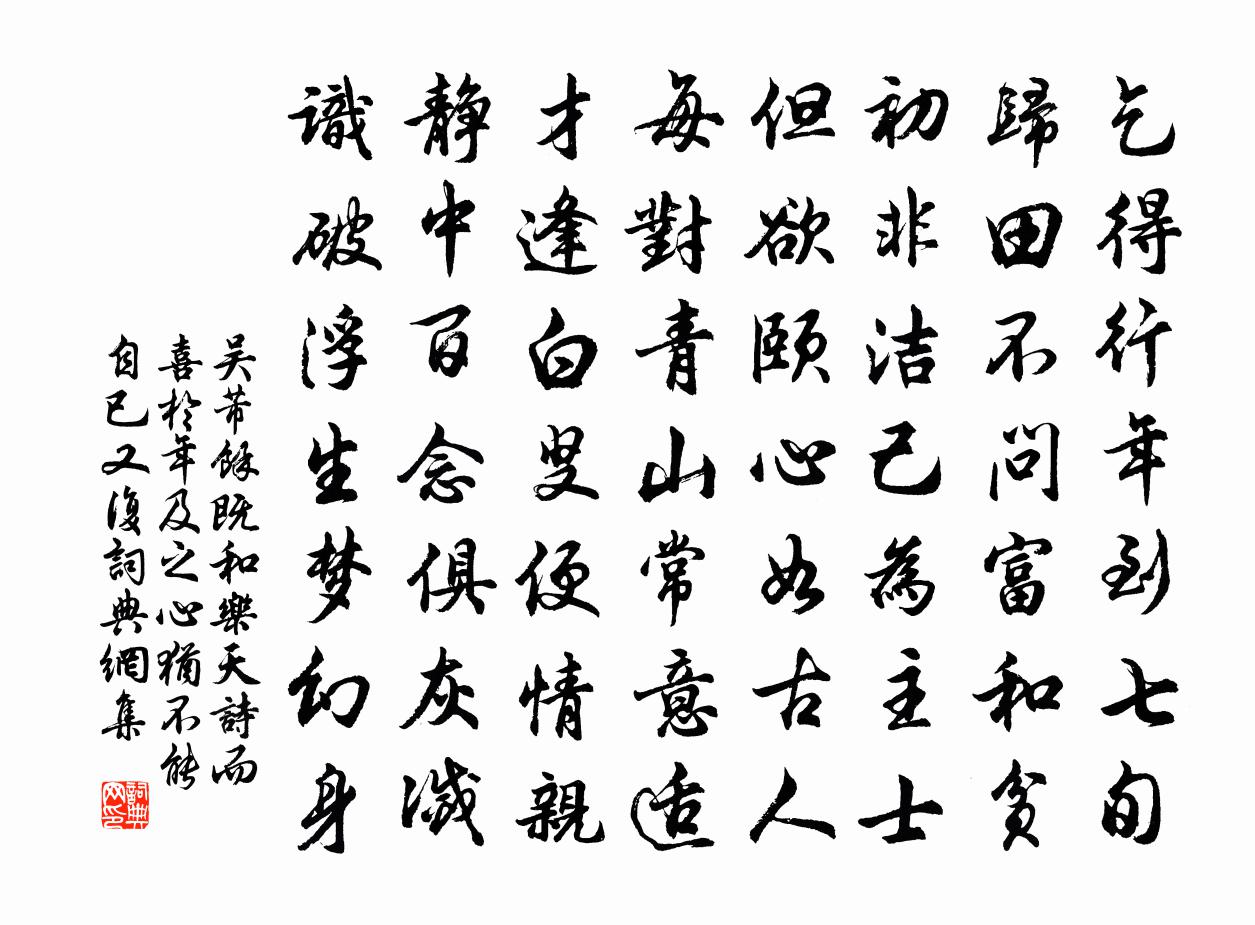 乞得行年到七旬
歸田不問富和貧
初非洁己為主士
但欲頤心如古人
每對青山常意适
才逢白叟便情親
静中百念俱灰滅
識破浮生梦幻身
吴芾餘既和樂天詩而
喜於年及之心猶不能
自已又復詞典網集
詞典
网印